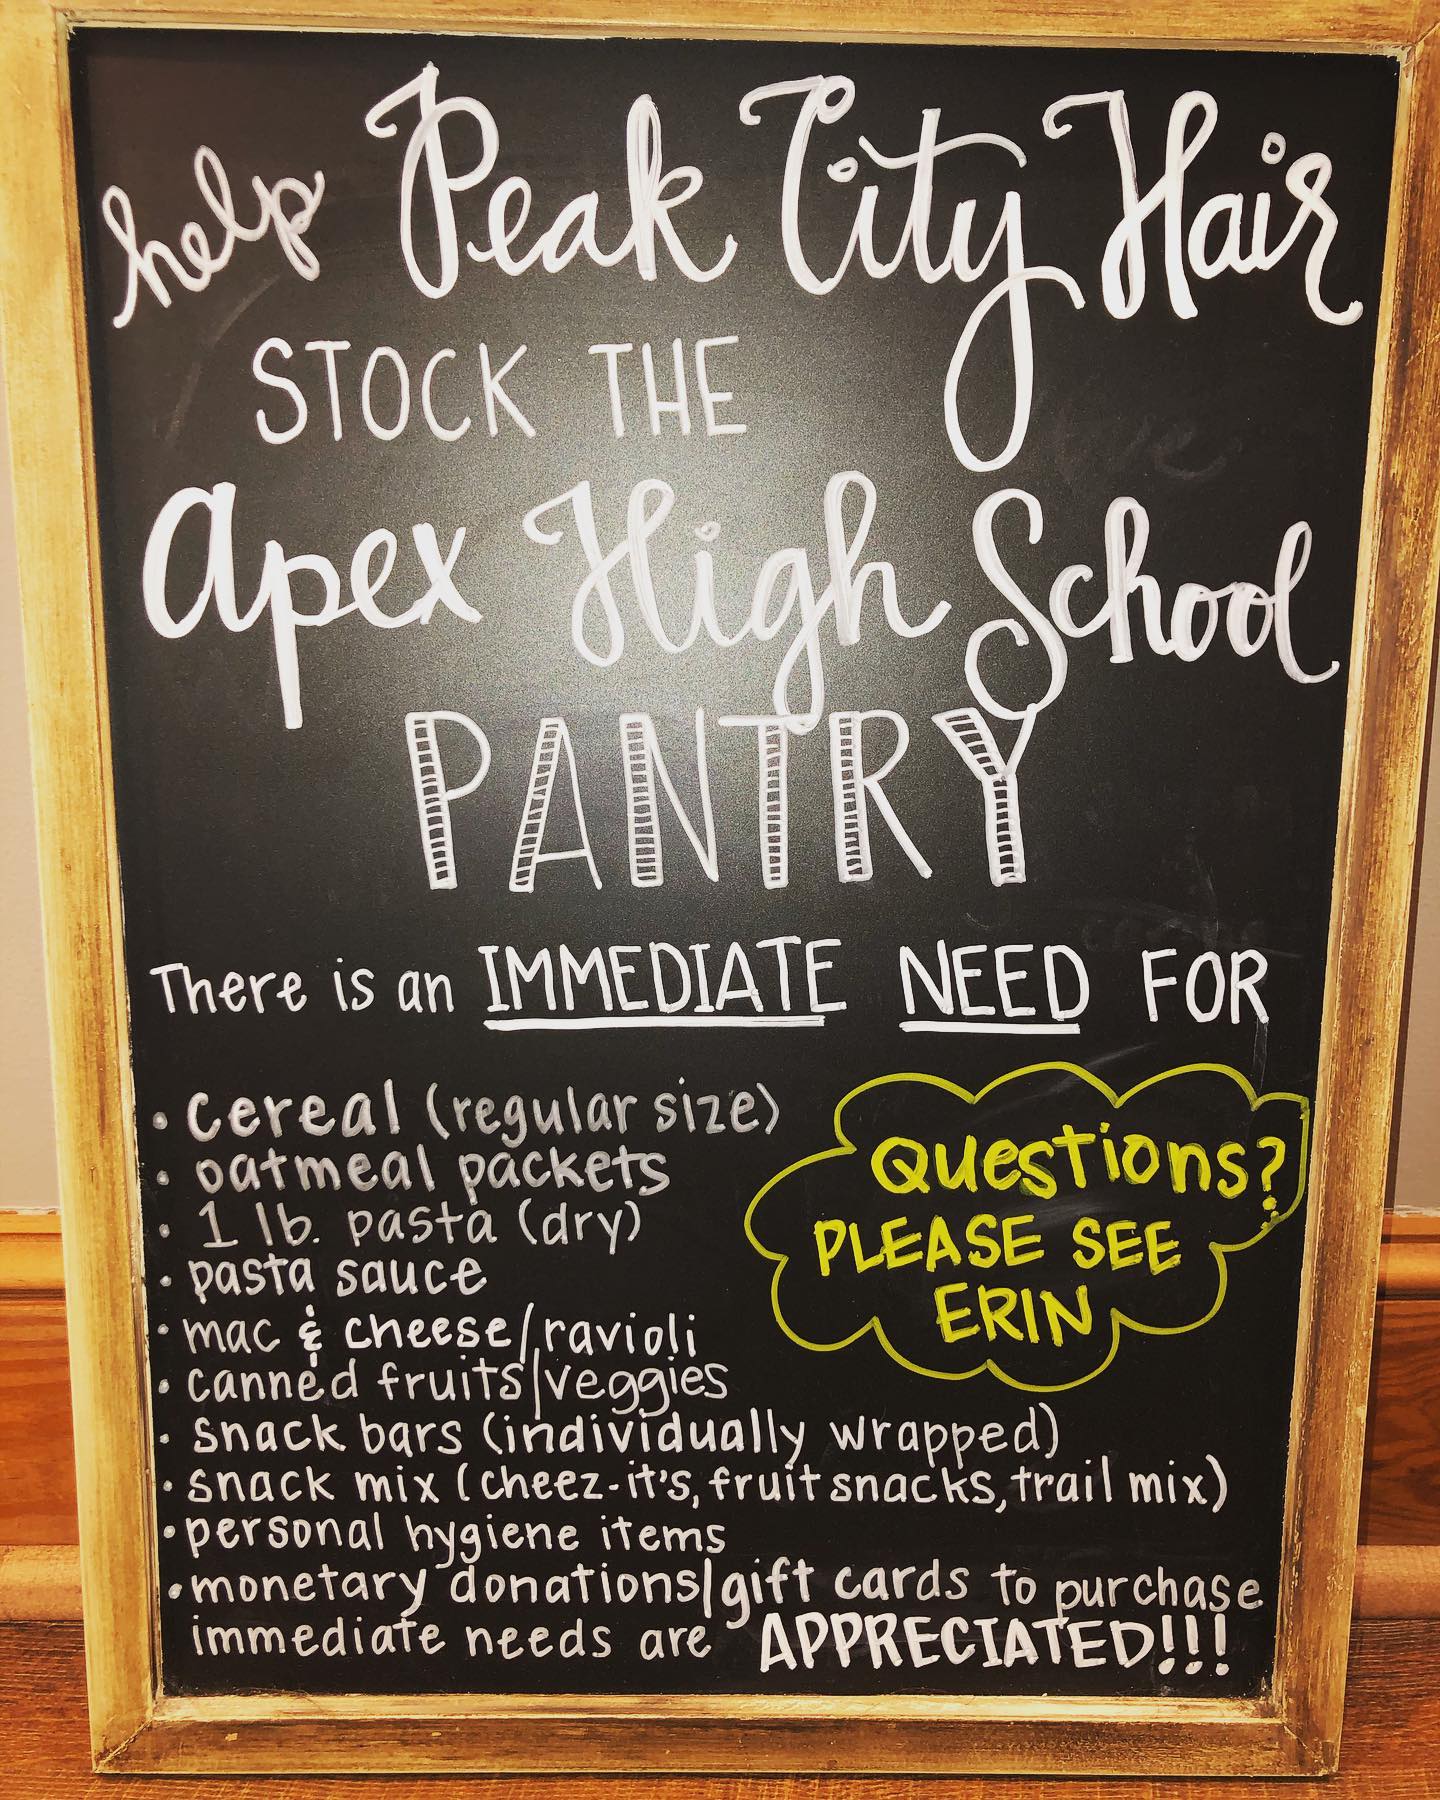 help Peak City Hair
STOCK THE
apex High School
PANTRY
There is an IMMEDIATE NEED FOR
• cereal (regular size)
• oatmeal packets
• 1 lb. pasta (dry)
• pasta sauce
• mac & cheese/ravioli
• canned fruits/veggies
• snack bars (individually wrapped)
• snack mix (cheez-it's, fruit snacks, trail mix)
• personal hygiene items
• monetary donations/gift cards to purchase
immediate needs are APPRECIATED!!!
Questions?
PLEASE SEE
ERIN